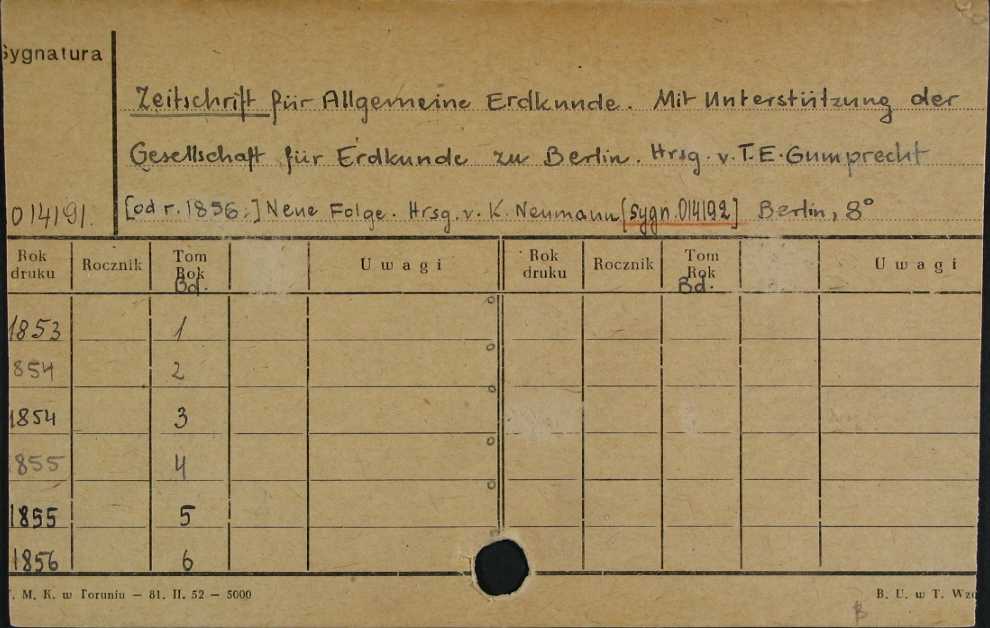 Sygnatura
Zeitschrift für Allgemeine Erdkunde. Mit Unterstützung der
Gesellschaft für Erdkunde zu Berlin. Hrsg. v. T. E. Gumprecht
014191. [od r. 1856:] Neue Folge. Hrsg. v. K. Neumann [sygn. 014192] Berlin, 8°
Rok druku Rocznik Tom Rok Bd. Uwagi Rok druku Rocznik Tom Rok Bd. Uwagi
1853 1
854 2
1854 3
1855 4
1855 5
1856 6
. M. K. w Toruniu — 81. II. 52 — 5000 B. U. w T. Wzó